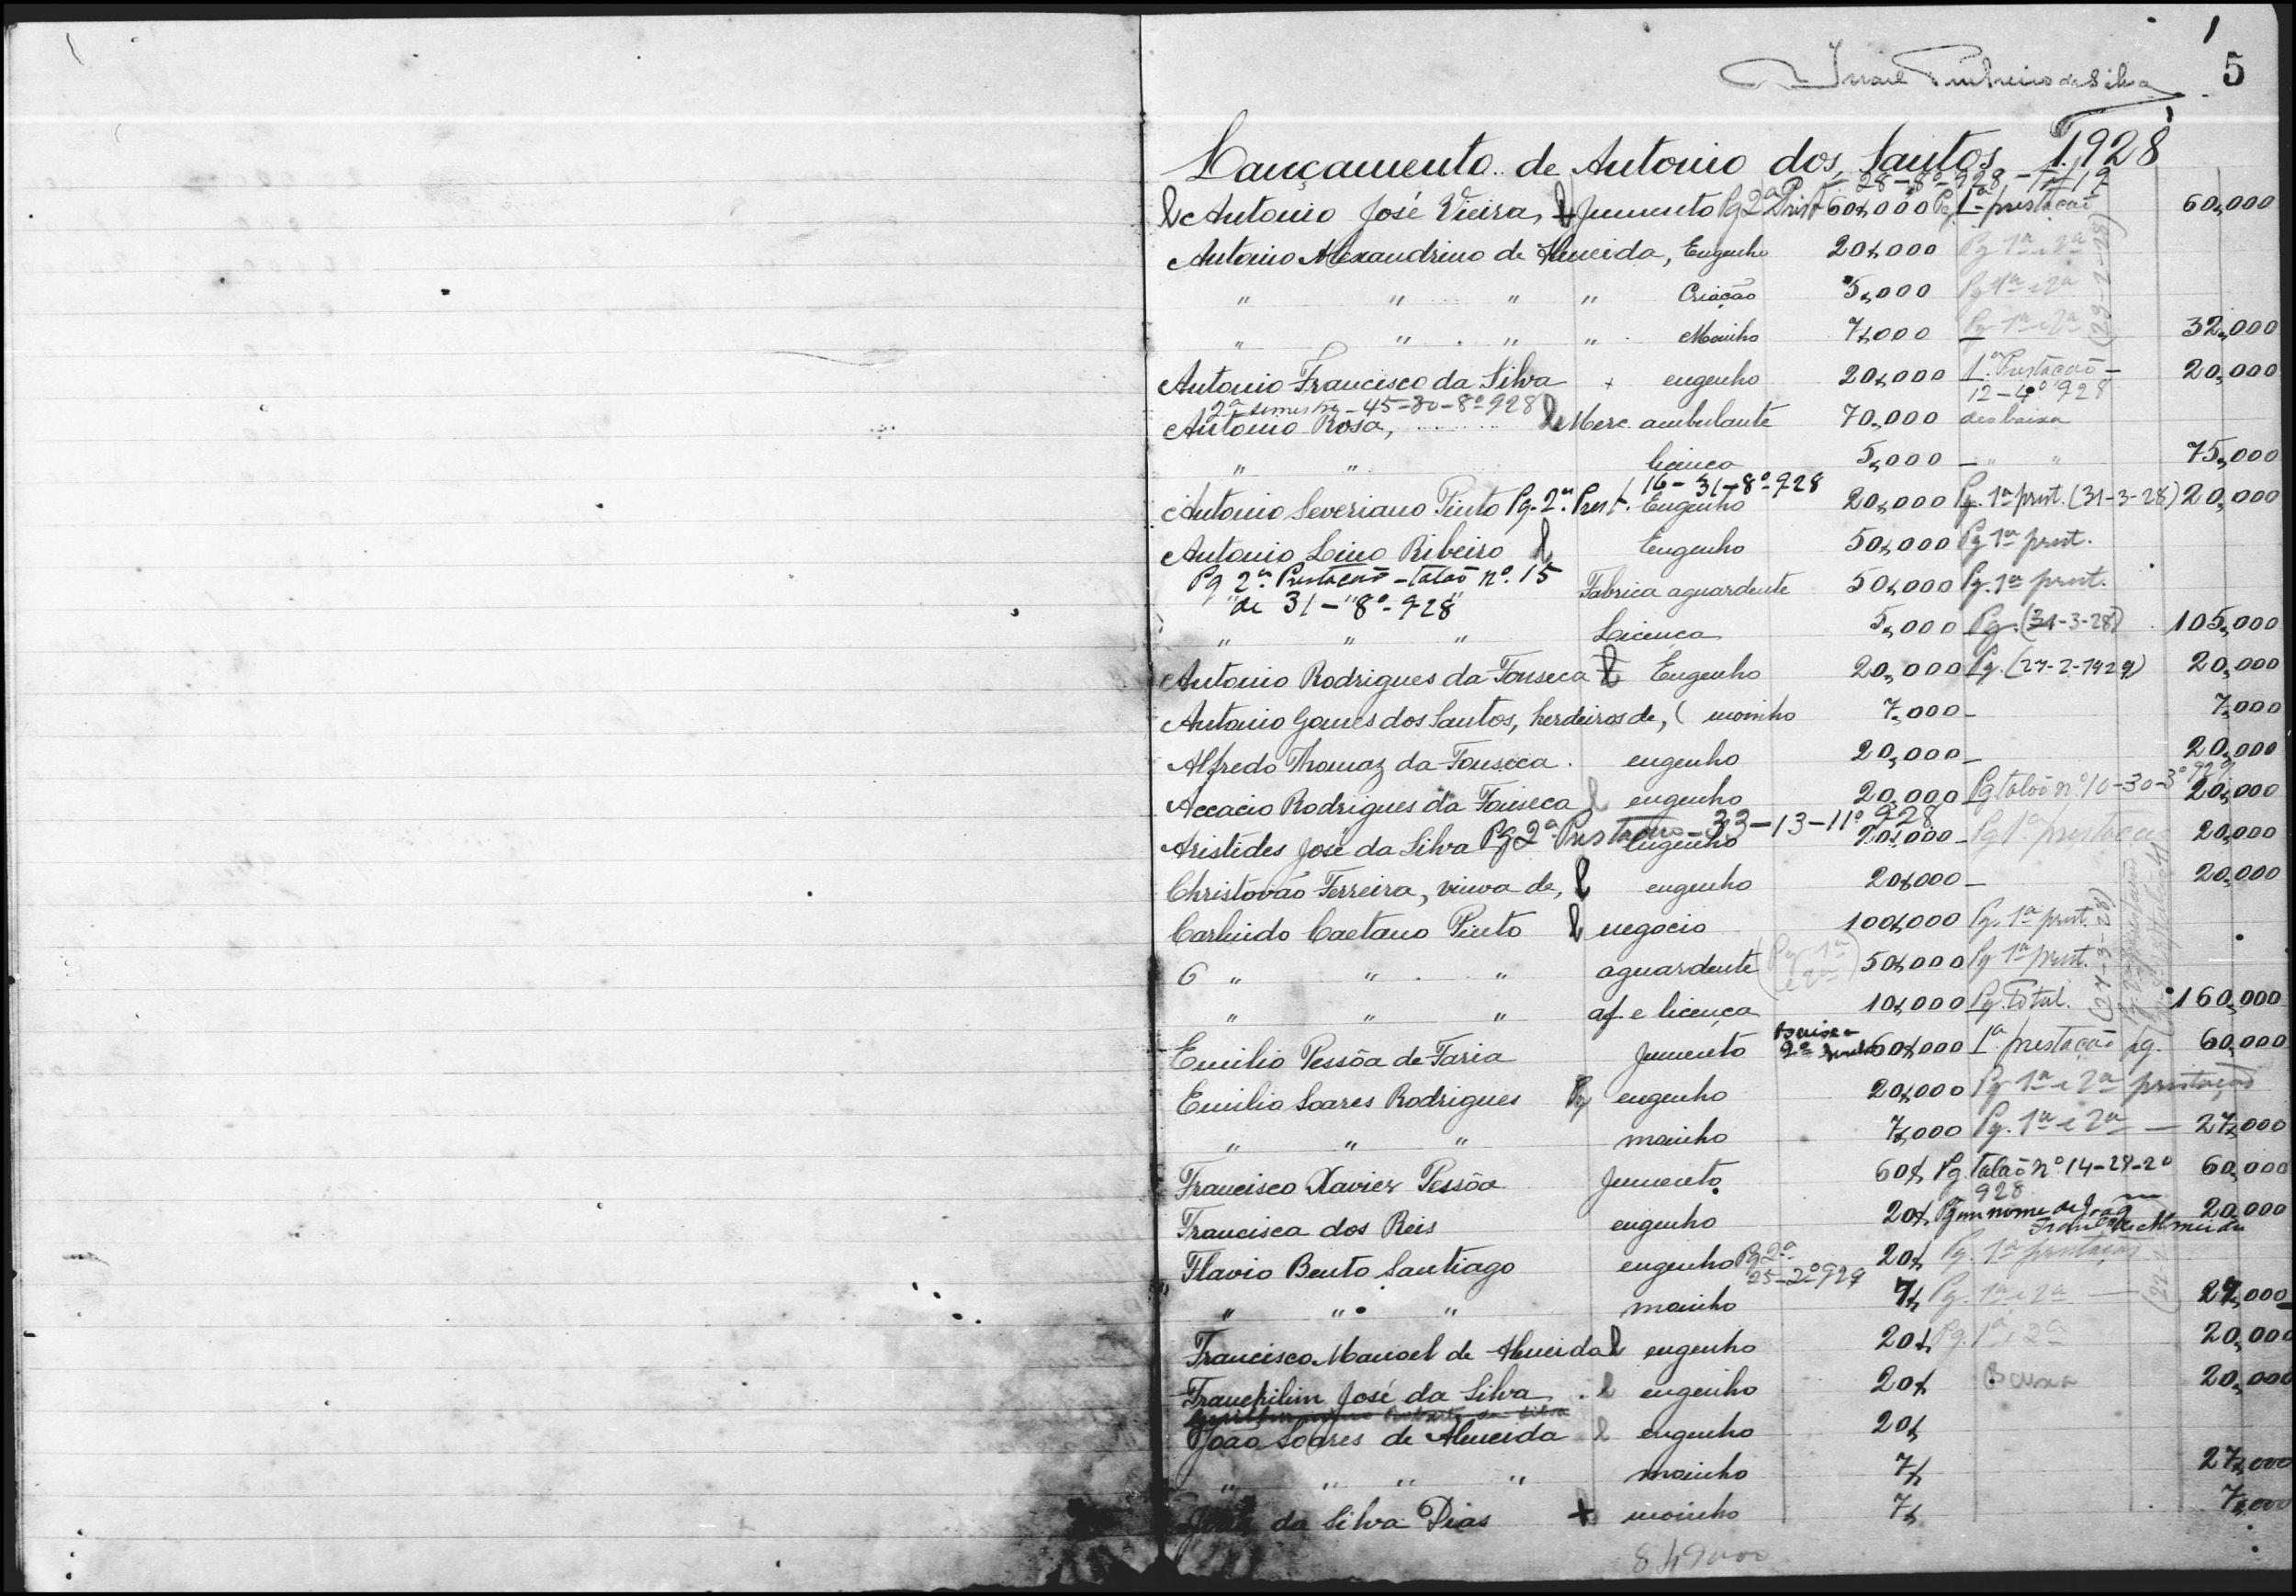 1
5
Israel Pinheiro da Silva
Lançamento de Antonio dos Santos 1928
28-8º-928
Antonio José Vieira, Jumento Pg 2ª Prist 60$000 Pg 1ª prestação 60,000
Antonio Alexandrino de Almeida, Engenho 20$000 Pg 1ª e 2ª
" " " " Criação 5,000 Pg 1ª e 2ª
" " " " Moinho 7$000 Pg 1ª e 2ª 32,000
Antonio Francisco da Silva + engenho 20$000 1ª Prestação 20,000
12-4º 928
2ª semestre-45-30-8º 928
Antonio Rosa, Merc. ambulante 70,000 deo baixa
" " licença 5,000 " " 75,000
16-31-8º-928
Antonio Severiano Pinto Pg. 2ª. Prest. Engenho 20,000 Pg. 1ª prest. (31-3-28) 20,000
Antonio Lino Ribeiro Engenho 50$000 Pg 1ª prest.
Pg 2ª. Prestação - talaõ nº. 15 Fabrica aguardente 50$000 Pg. 1ª prest.
de 31-8º-928
" " " Licença 5,000 Pg. (31-3-28) 105,000
Antonio Rodrigues da Fonseca Engenho 20,000 Pg. (27-2-1929) 20,000
Antonio Gomes dos Santos, herdeiros de, moinho 7,000 7,000
Alfredo Thomaz da Fonseca. engenho 20,000 20,000
Accacio Rodrigues da Fonseca engenho 20,000 Pg talaõ nº 10-30-3º 929 20,000
Aristides José da Silva Pg 2ª Prestação - 33-13-11º 928 Engenho 20$000 Pg 1ª prestação 20,000
Christovão Ferreira, viuva de, engenho 20$000 20,000
Carlindo Caetano Pinto negocio 100$000 Pg. 1ª prest.
" " " aguardente (Pg 1ª e 2ª) 50$000 Pg 1ª prest.
" " " af. e licença 10$000 Pg. Total. (27-3-28) 160,000
Emilio Pessôa de Faria Jumento Baixa 2º 60$000 1ª. prestação pg. 60,000
Emilio Soares Rodrigues Pg engenho 20$000 Pg 1ª e 2ª prestação
" " " moinho 7$000 Pg. 1ª e 2ª 27,000
Francisco Xavier Pessôa Jumento 60$ Pg talaõ nº 14-27-2º 60,000
928
Francisca dos Reis engenho 20$ Pg em nome de João 20,000
Flavio Bento Santiago engenho Pg 2ª 20$ Pg. 1ª prestação
25-2º 929
" " " moinho 7$ Pg. 1ª e 2ª 27,000
Francisco Manoel de Almeida engenho 20$ Pg. 1ª e 2ª 20,000
Franchilim José da Silva engenho 20$ Baixa 20,000
João Soares de Almeida engenho 20$
" " " " moinho 7$ 27,000
da Silva Dias + moinho 7$ 7,000